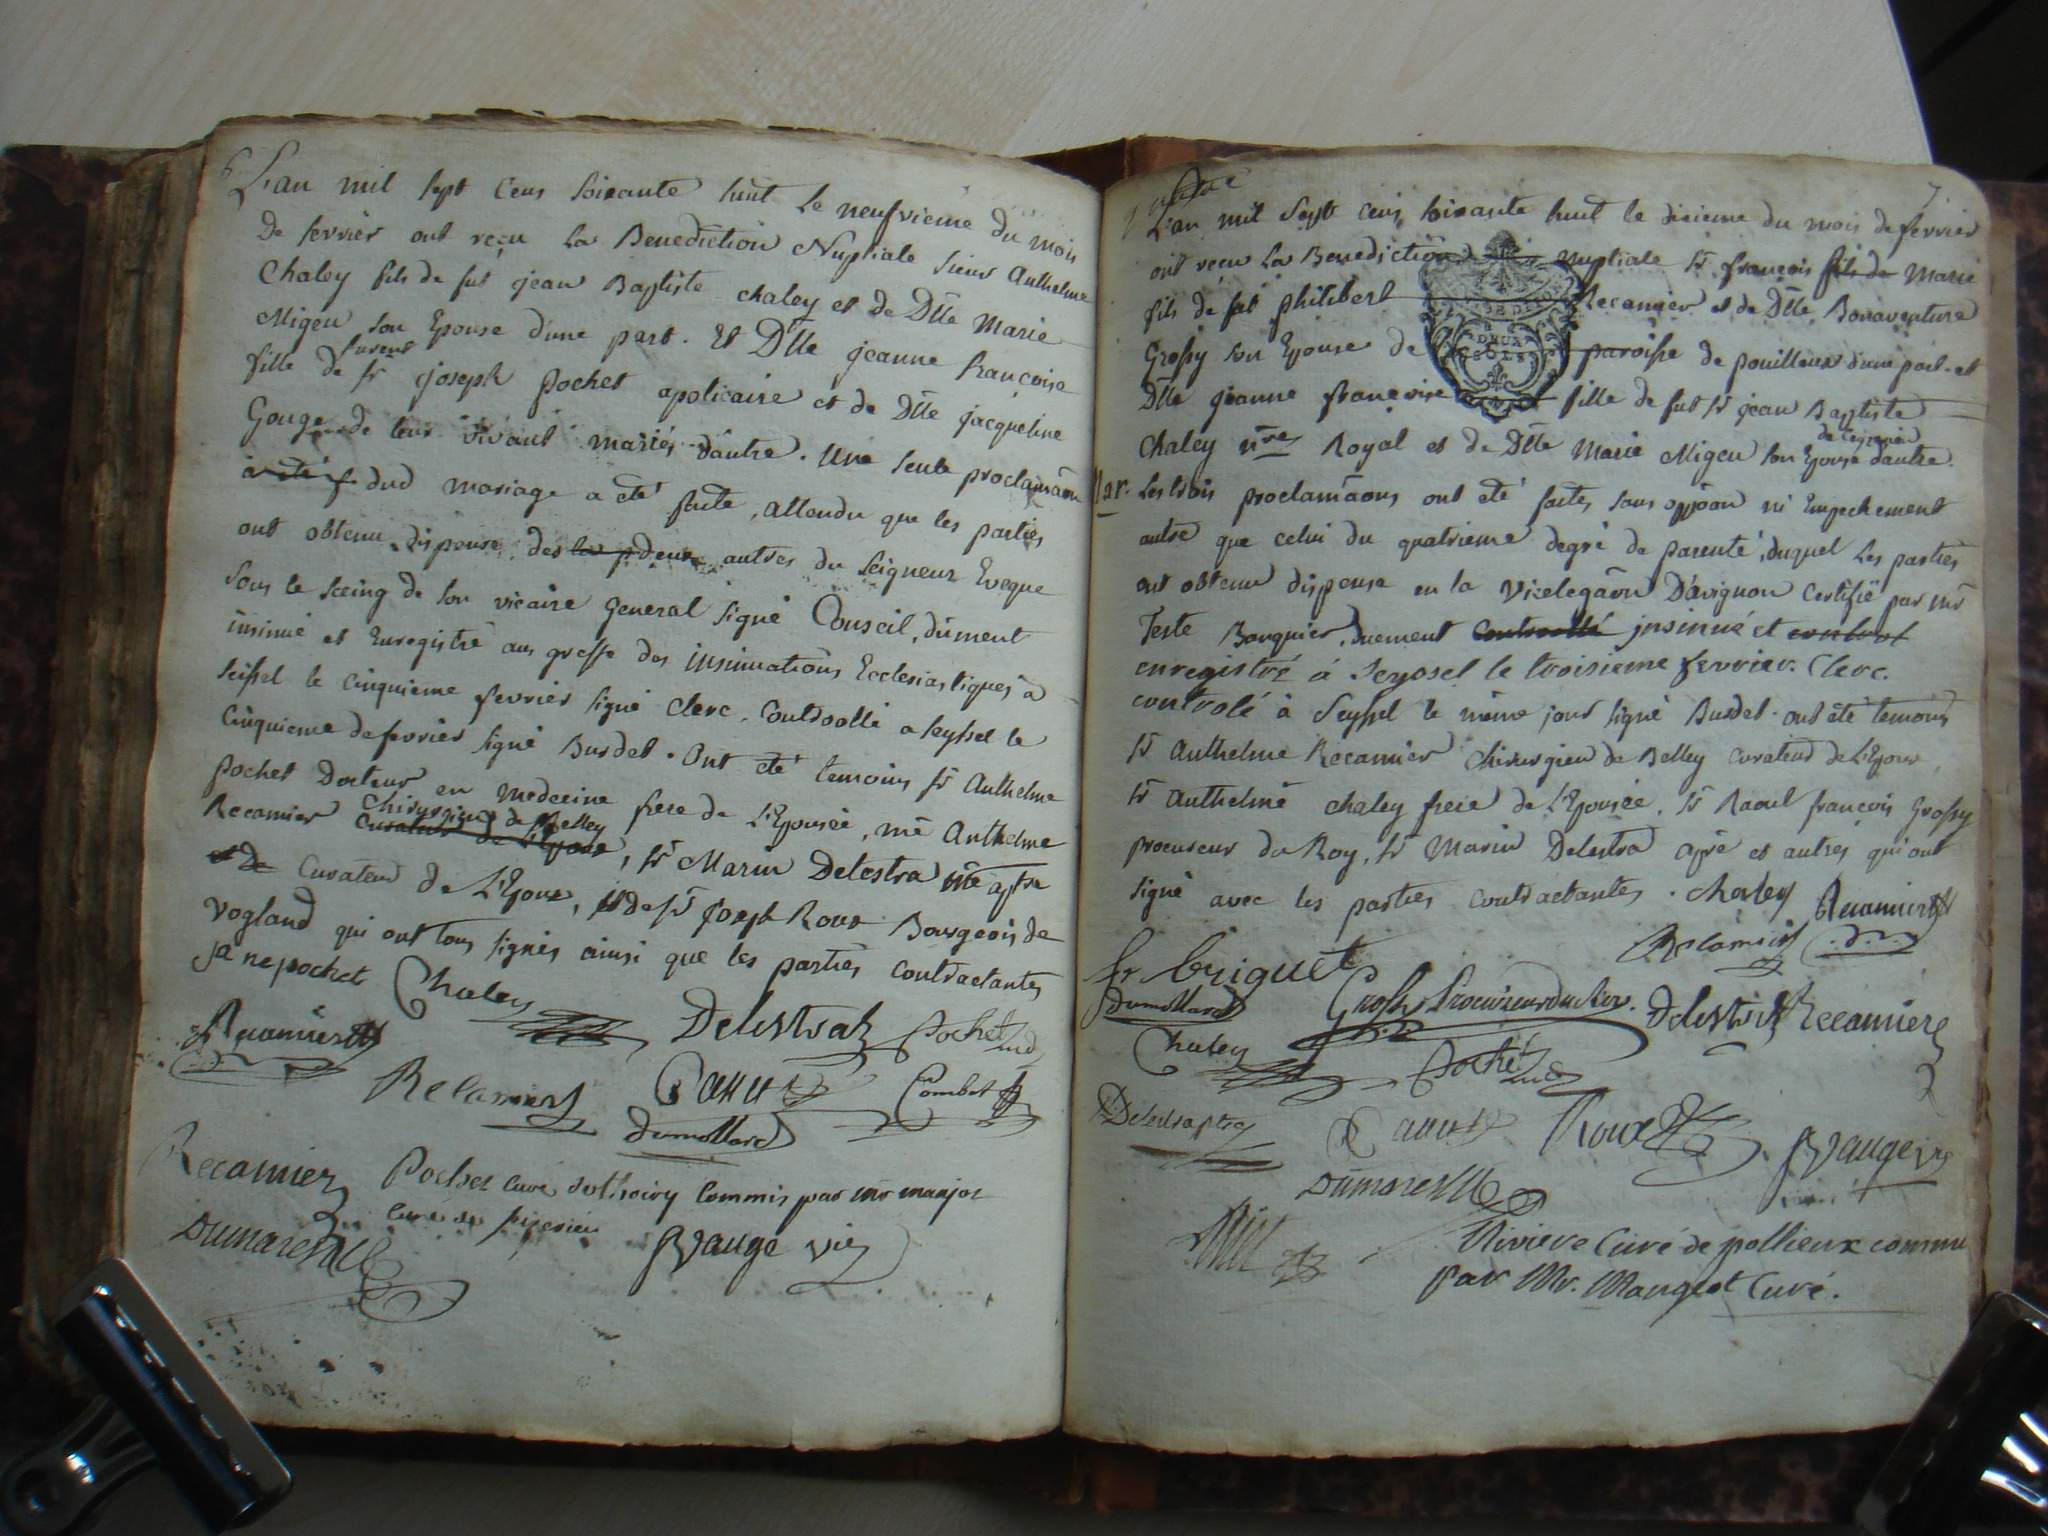 6
L'an mil sept cens soixante huit le neufvieme du mois
de fevrier ont reçu la Benediction Nuptiale sieur Anthelme
Chaley fils de fut jean Baptiste chaley et de Dlle Marie
Migeu son Epouse d'une part. Et Dlle jeanne françoise
furent
fille de sr joseph pochet apoticaire et de Dlle jacqueline
Gouge de leur vivant mariés d'autre. Une seule proclamaon
dud mariage a été faite, attendu que les parties
ont obtenu dispense des autres du seigneur Eveque
sous le seeing de son vicaire general signé Conseil, dûment
insinué et Enregistré aux greffe des insinuations Ecclesiastiques à
seissel le cinquieme fevrier signé Clerc. Controollé a seyssel le
cinquieme de fevrier signé Burdet. Ont été temoins sr Anthelme
pochet Docteur en medecine frere de L'Epousée, me Anthelme
Recamier chirurgien de Belley
curateur de L'Epoux, sr Marin Delestra
et de curateur de L'Epoux, sr joseph Roux Bourgeois de
Vogland qui ont tous signés ainsi que les parties contractantes
j ne pochet Chaley Delestraz Pochet md
Recamier
Recamier Combet
Dumollard
Recamier Pochet curé commis par mr manjot
curé de
Dumarest Vauge vic
7
L'an mil sept cens soixante huit le dixieme du mois de fevrier
ont reçu la Benediction nuptiale sr françois fils de Marie
fils de fut philibert Recamier et de Dlle Bonaventure
Grossy son Epouse de paroisse de pouilleux d'une part. et
Dlle jeanne françoise fille de fut sr jean Baptiste
Chaley nre Royal et de Dlle Marie Migeu son Epouse d'autre.
Les trois proclamaons ont été faites sans oppoon ni Empechement
autre que celui du quatrieme degré de parenté, duquel les parties
ont obtenu dispense en la Vicelegaon D'avignon Certifié par mr
Teste Banquier, duement controollé insinué et control
enregistré à Seyssel le troisieme fevrier. Clerc.
controlé à Seyssel le même jour signé Burdet. ont été temoins
sr Anthelme Recamier Chirurgien de Belley curateur de L'Epoux,
sr Anthelme chaley frere de L'Epousée, sr Raoul françois Grossy
procureur du Roy, sr Marin Delestra et autres qui ont
signé avec les parties contractantes. Chaley Recamier
Recamier
fr briguet
Dumollard Grossy Procureur du Roy. Delestra Recamier
Chaley Pochet md
Delestra
Roux Vauge vic
Dumarest
Riviere Curé de pollieux commis
par Mr. Mangeot Curé.